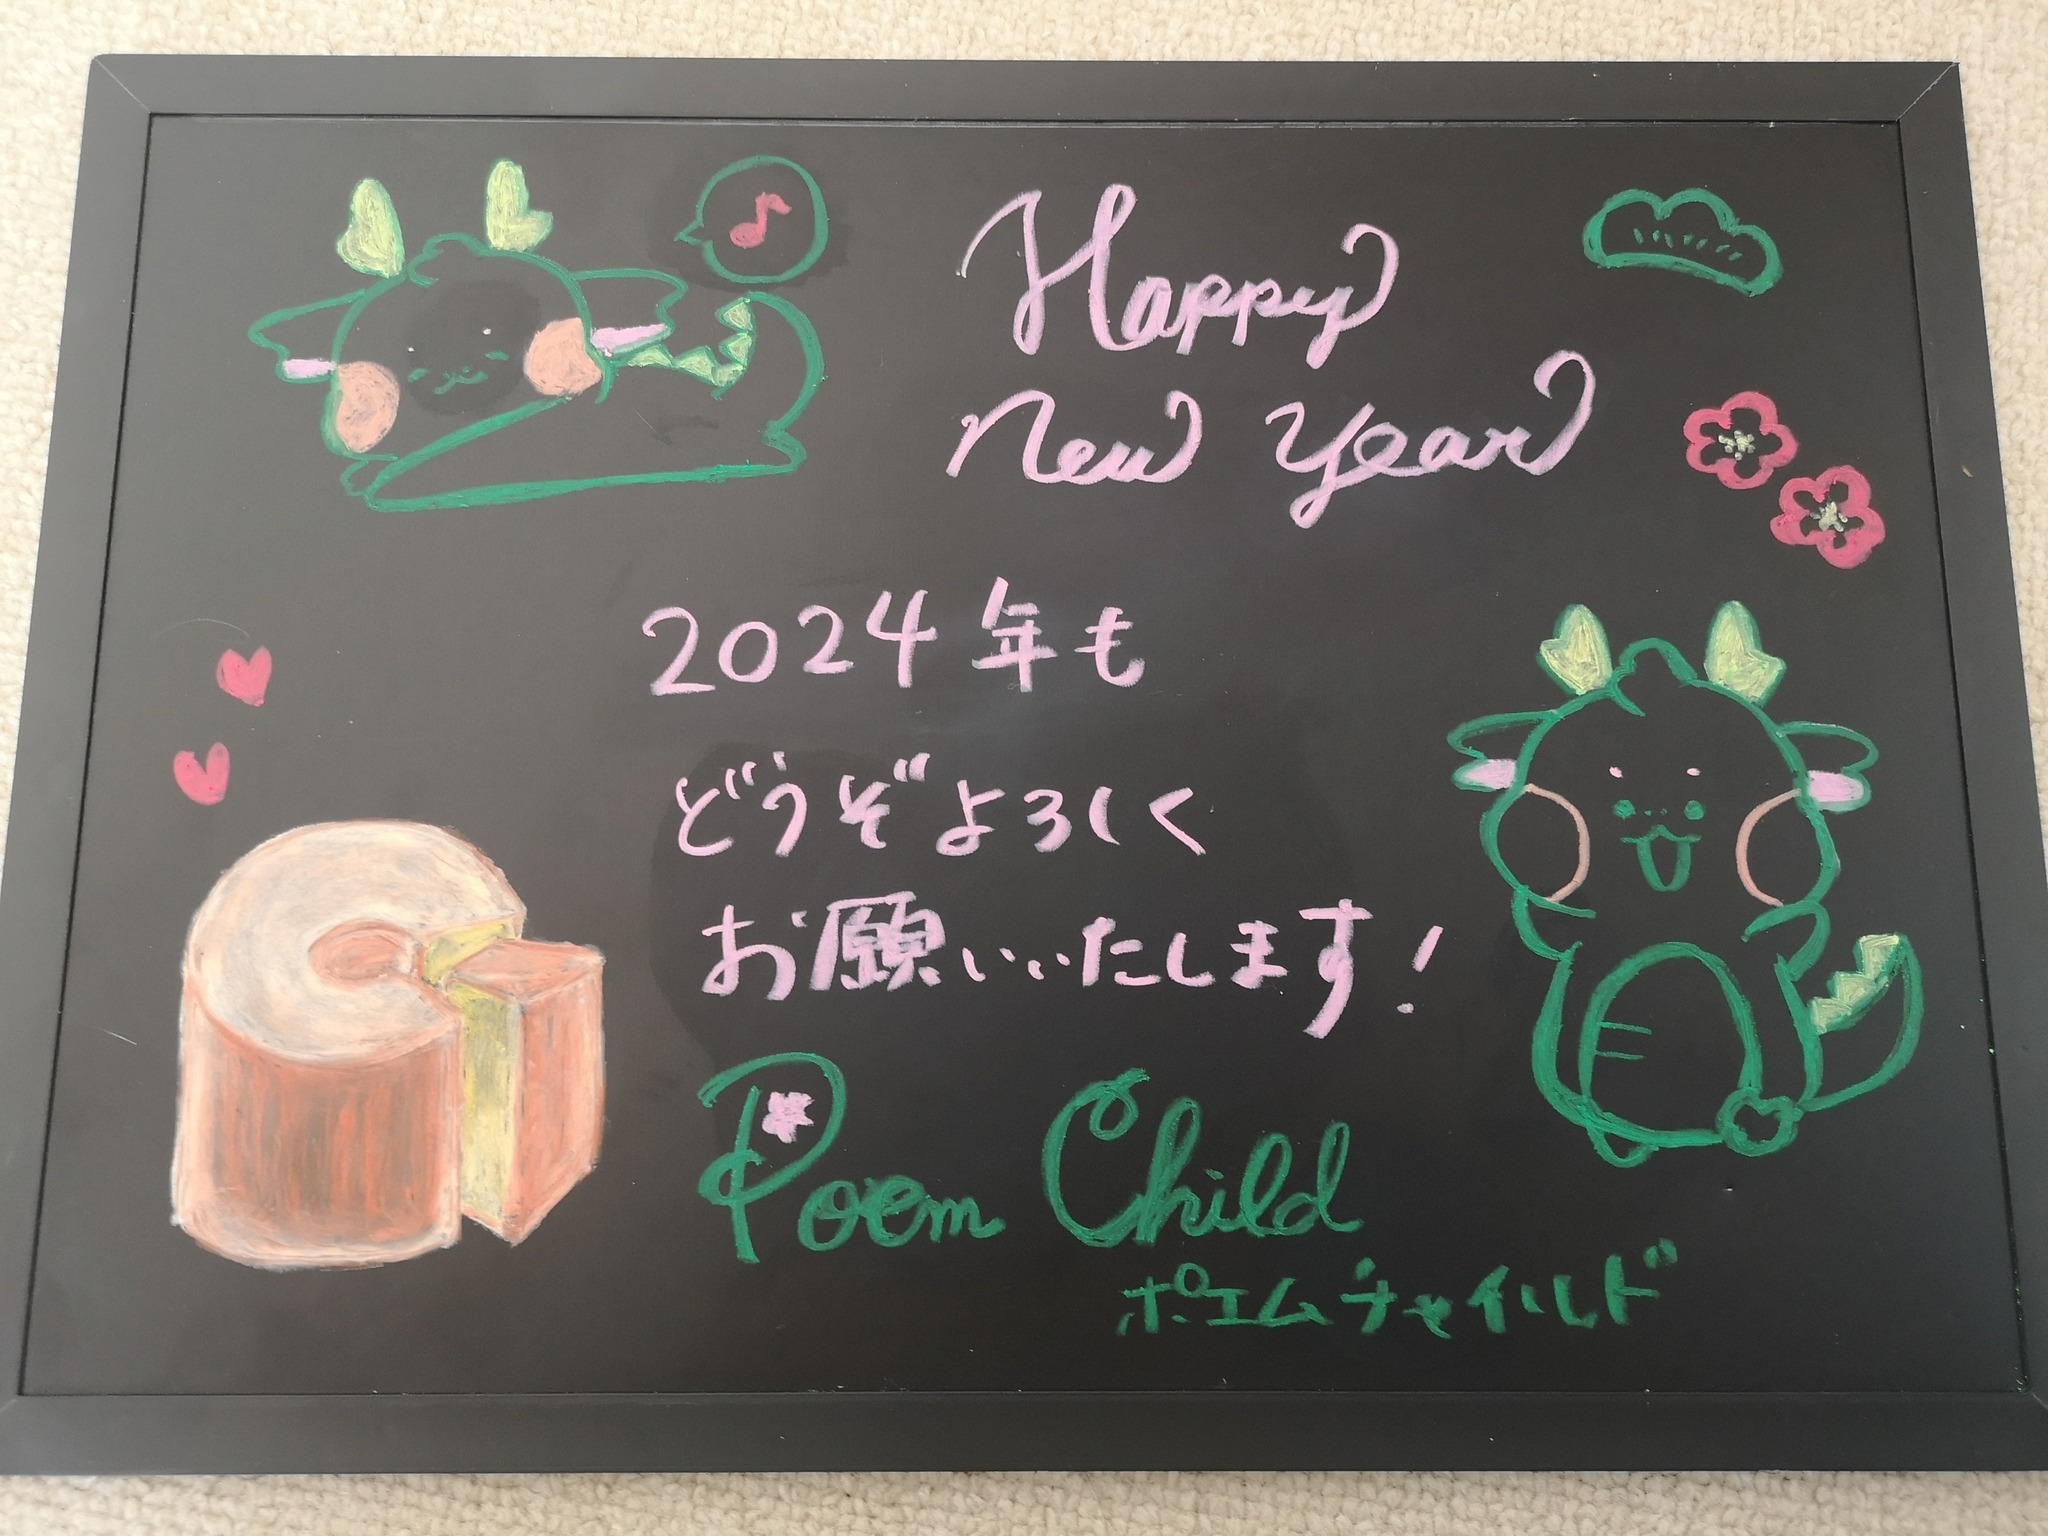 Happy
New Year
2024年も
どうぞよろしく
お願いいたします!
Poem Child
ポエムチャイルド